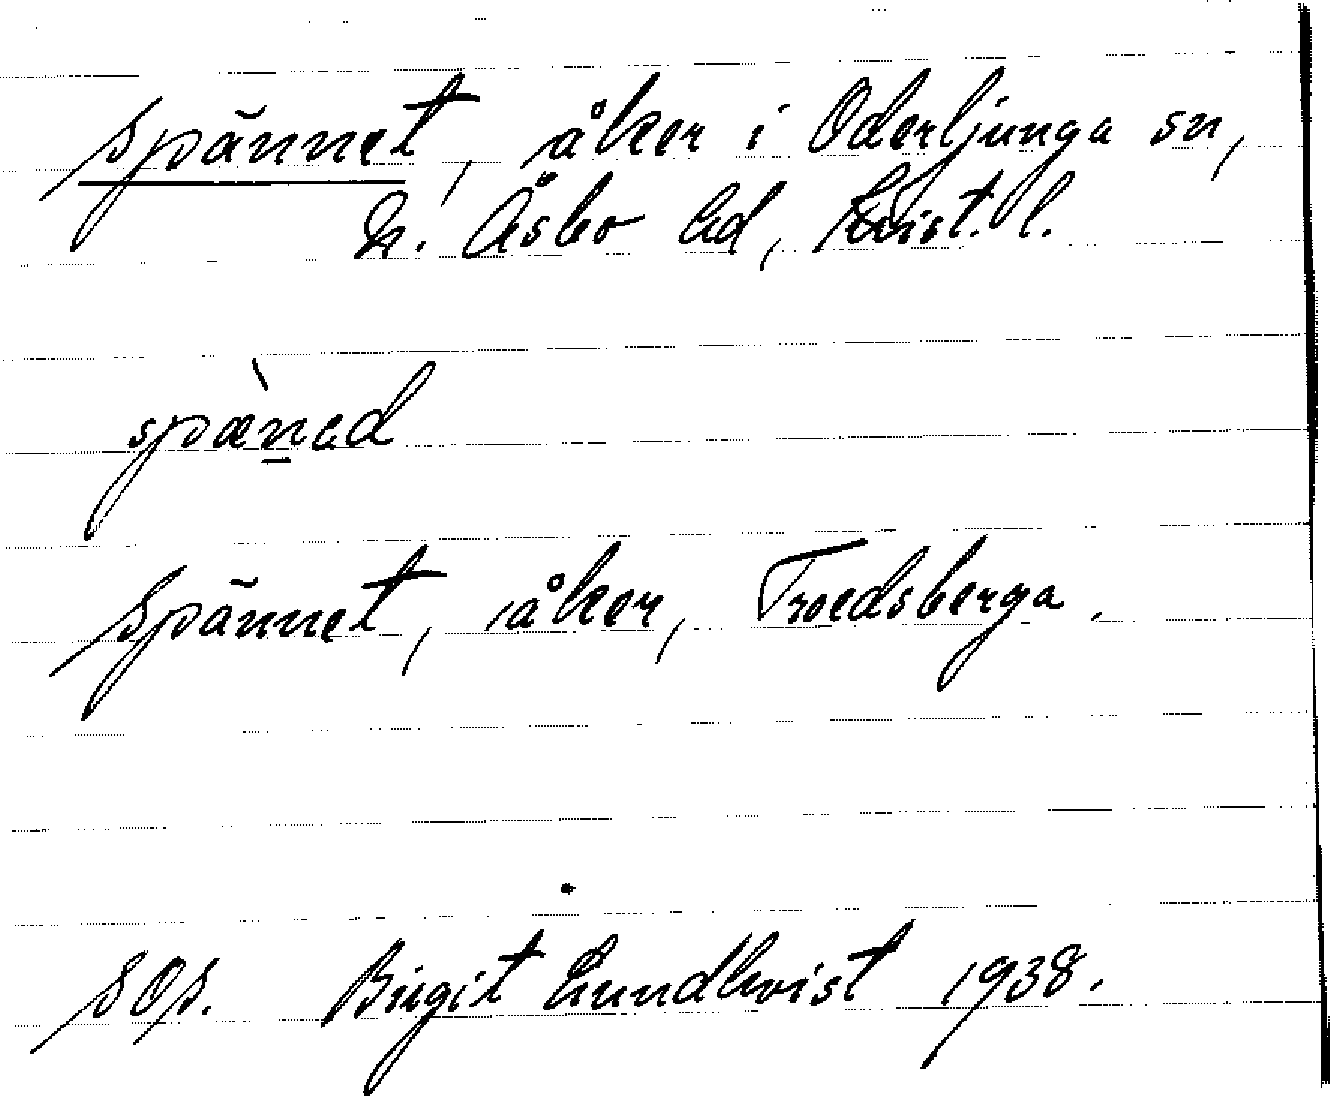 Spännet, åker i Oderljunga sn,
N. Åsbo hd, Krist. l.
spæ̀n̲ad
Spännet, åker, Troedsberga.
SOS. Birgit Lundkvist 1938.